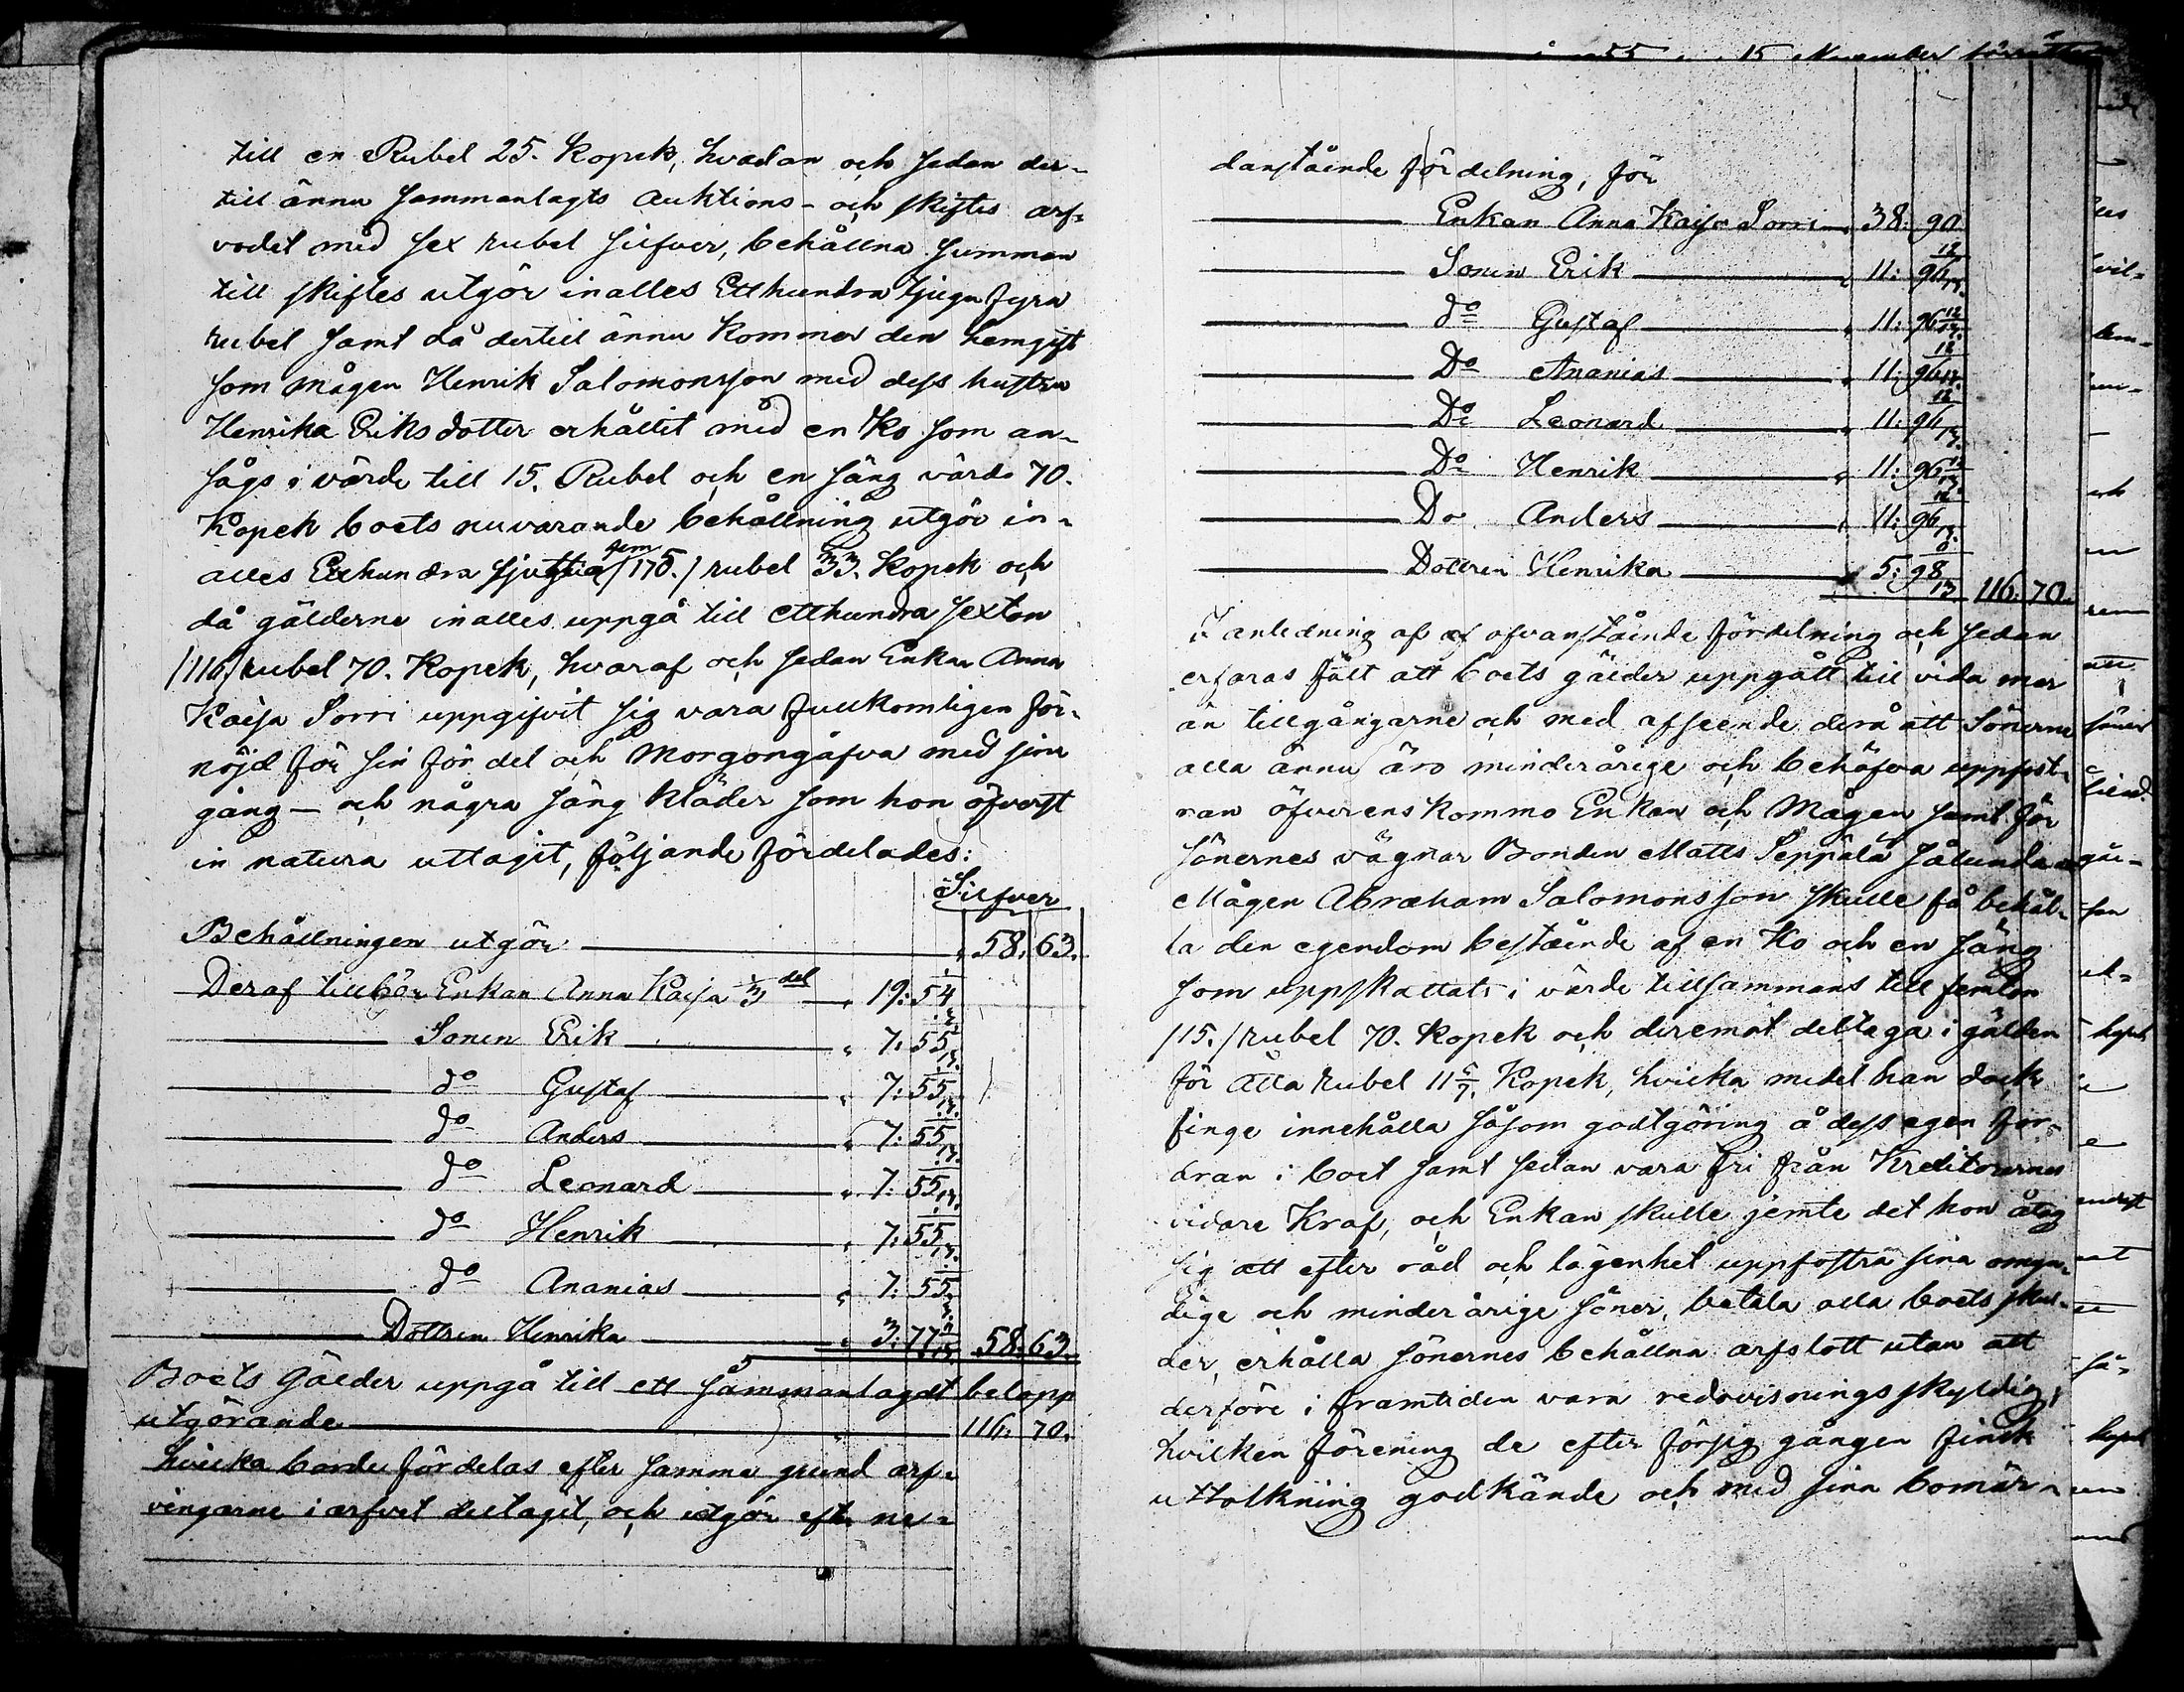 till en Rubel 25. Kopek, hvadan och sedan der-
till ännu sammanlagts Auktions- och skiftes arf-
vodet med sex rubel silfver, behållna summan
till skiftes utgör inalles Etthundra tjugu fyra
rubel samt då dertill ännu kommer den hemgift
som mågen Henrik Salomonsson med dess hustru
Henrika Eriksdotter erhållit med en Ko som an-
sågs i värde till 15. Rubel och en säng värd 70.
Kopek boets nuvarande behållning utgör in-
alles Etthundra sjuttio fem /175./ rubel 33. Kopek och
då gälderne inalles uppgå till etthundra sexton
/116/ rubel 70. Kopek, hvaraf och sedan Enkan Anna
Kaisa Sorri uppgifvit sig vara fullkomligen för-
nöjd för sin fördel och Morgongåfva med sin
gång- och några säng kläder som hon öfverst
in natura uttagit, följande fördelades:
Silfver
Behållningen utgör " 58. 63.
Deraf tillhör Enkan Anna Kaisa 1/3 del " 19: 54
Sonen Erik " 7: 55
do Gustaf " 7: 55
do Anders " 7: 55
do Leonard " 7: 55
do Henrik " 7: 55
do Ananias " 7: 55
Dottren Henrika " 3: 77 58. 63.
Boets Gälder uppgå till ett sammanlagdt belopp
utgörande " 116. 70.
hvilka borde fördelas efter samma grund arf-
vingarne i arfvet deltagit, och utgör efter ne-
55 15 November förrättad
danstående fördelning, för
Enkan Anna Kaisa Sorri " 38. 90
Sonen Erik " 11: 96 12/13.
do Gustaf " 11: 96 12/13.
Do Ananias " 11: 96 12/13.
Do Leonard " 11: 96 12/13.
Do Henrik " 11: 96 12/13.
Do Anders " 11: 96 12/13.
Dottren Henrika " 5: 98 6/13 116. 70.
I anledning af af ofvanstående fördelning och sedan
erfaras fått att boets gälder uppgått till vida mer
än tillgångarne och med afseende derå att Sönerne
alla ännu äro minderårige och behöfva uppfost-
ran öfverenskommo Enkan och Mågen samt för
Sönernes vägnar Bonden Matts Seppälä sålunda att
Mågen Abraham Salomonsson skulle få behål-
la den egendom bestående af en Ko och en säng
som uppskattats i värde tillsammans till femton
/15./ rubel 70. Kopek och deremot deltaga i gälden
för Åtta rubel 11 5/7. Kopek, hvilka medel han dock
finge innehålla såsom godtgöring å dess egen for-
dran i boet samt sedan vara fri från Kreditorernes
vidare Kraf, och Enkan skulle jemte det hon åtog
sig att efter råd och lägenhet uppfostra sina omyn-
dige och minderårige söner, betala alla boets skul-
der, erhålla sönernes behållna arfslott utan att
derföre i framtiden vara redovisningsskyldig,
hvilken förening de efter försig gången finsk
uttolkning godkände och med sina bomär-